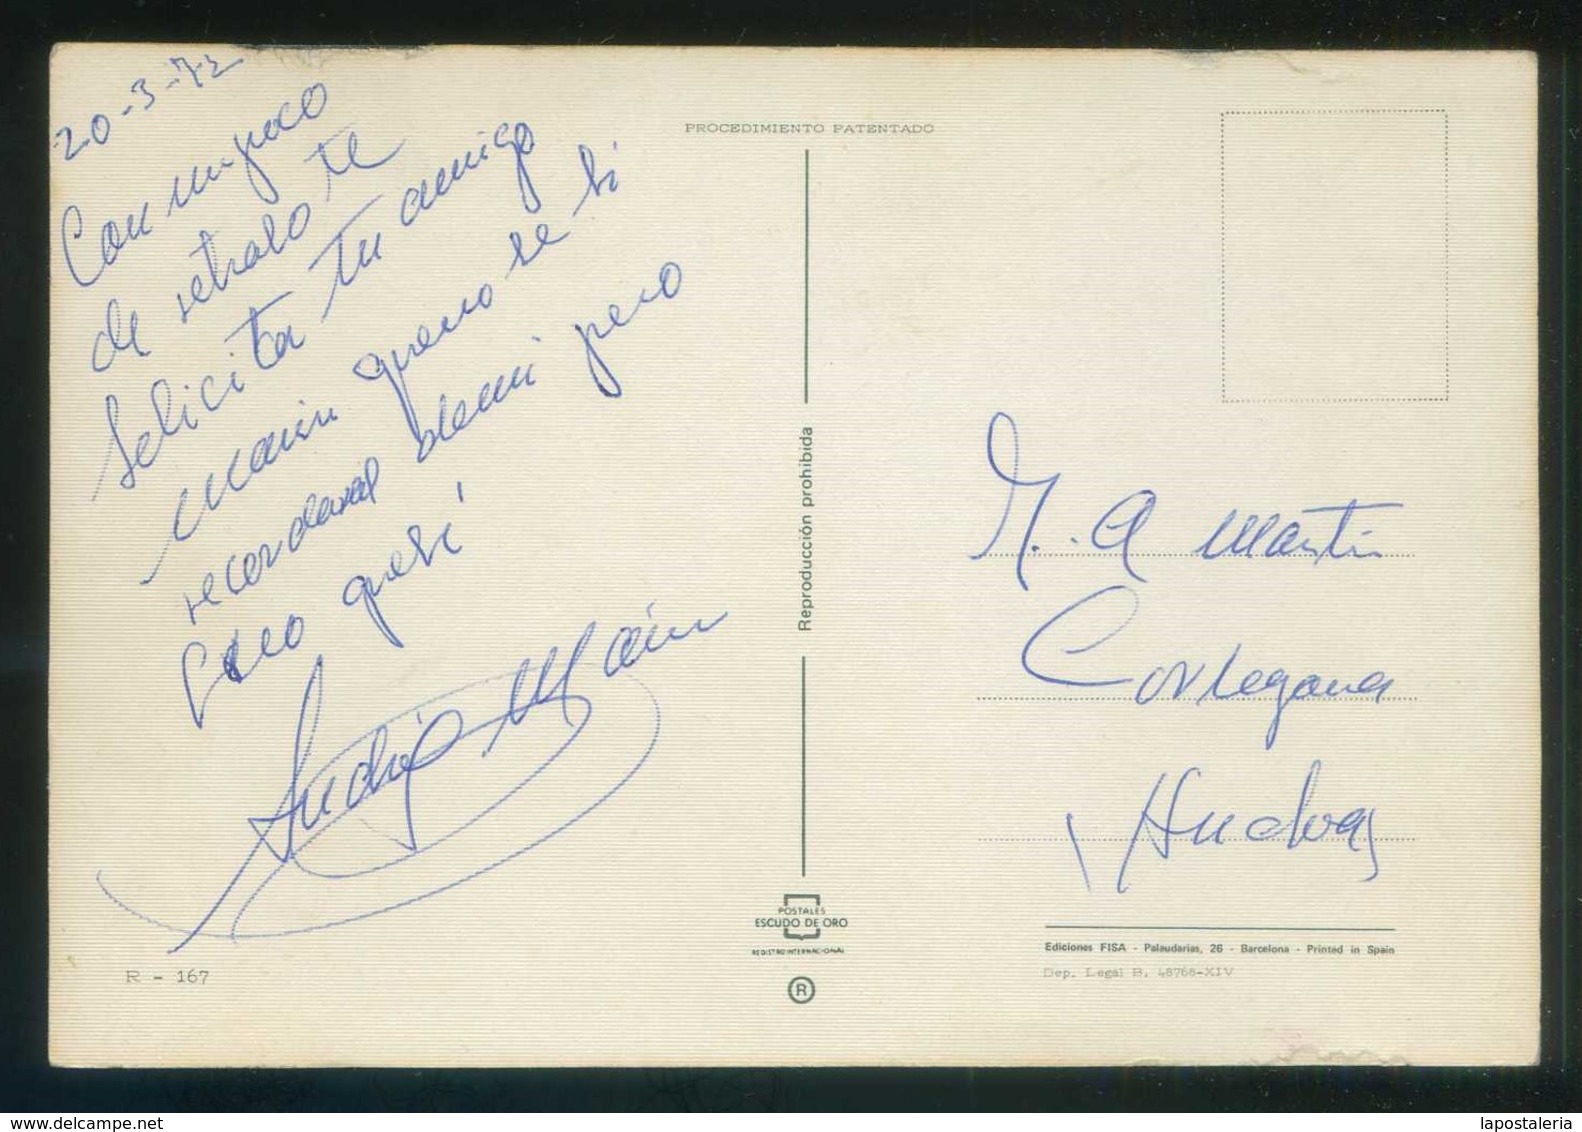 20-3-72
Con un poco
de retraso te
felicita tu amigo
Marin que no se si
recordaras de mi pero
Creo que si
Marin
PROCEDIMIENTO PATENTADO
Reproducción prohibida
M. A Martin
Cortegana
Huelva
POSTALES
ESCUDO DE ORO
REGISTRO INTERNACIONAL
R
R - 167
Ediciones FISA - Palaudarias, 26 - Barcelona - Printed in Spain
Dep. Legal B. 48768-XIV
delcampe.net
lapostaleria